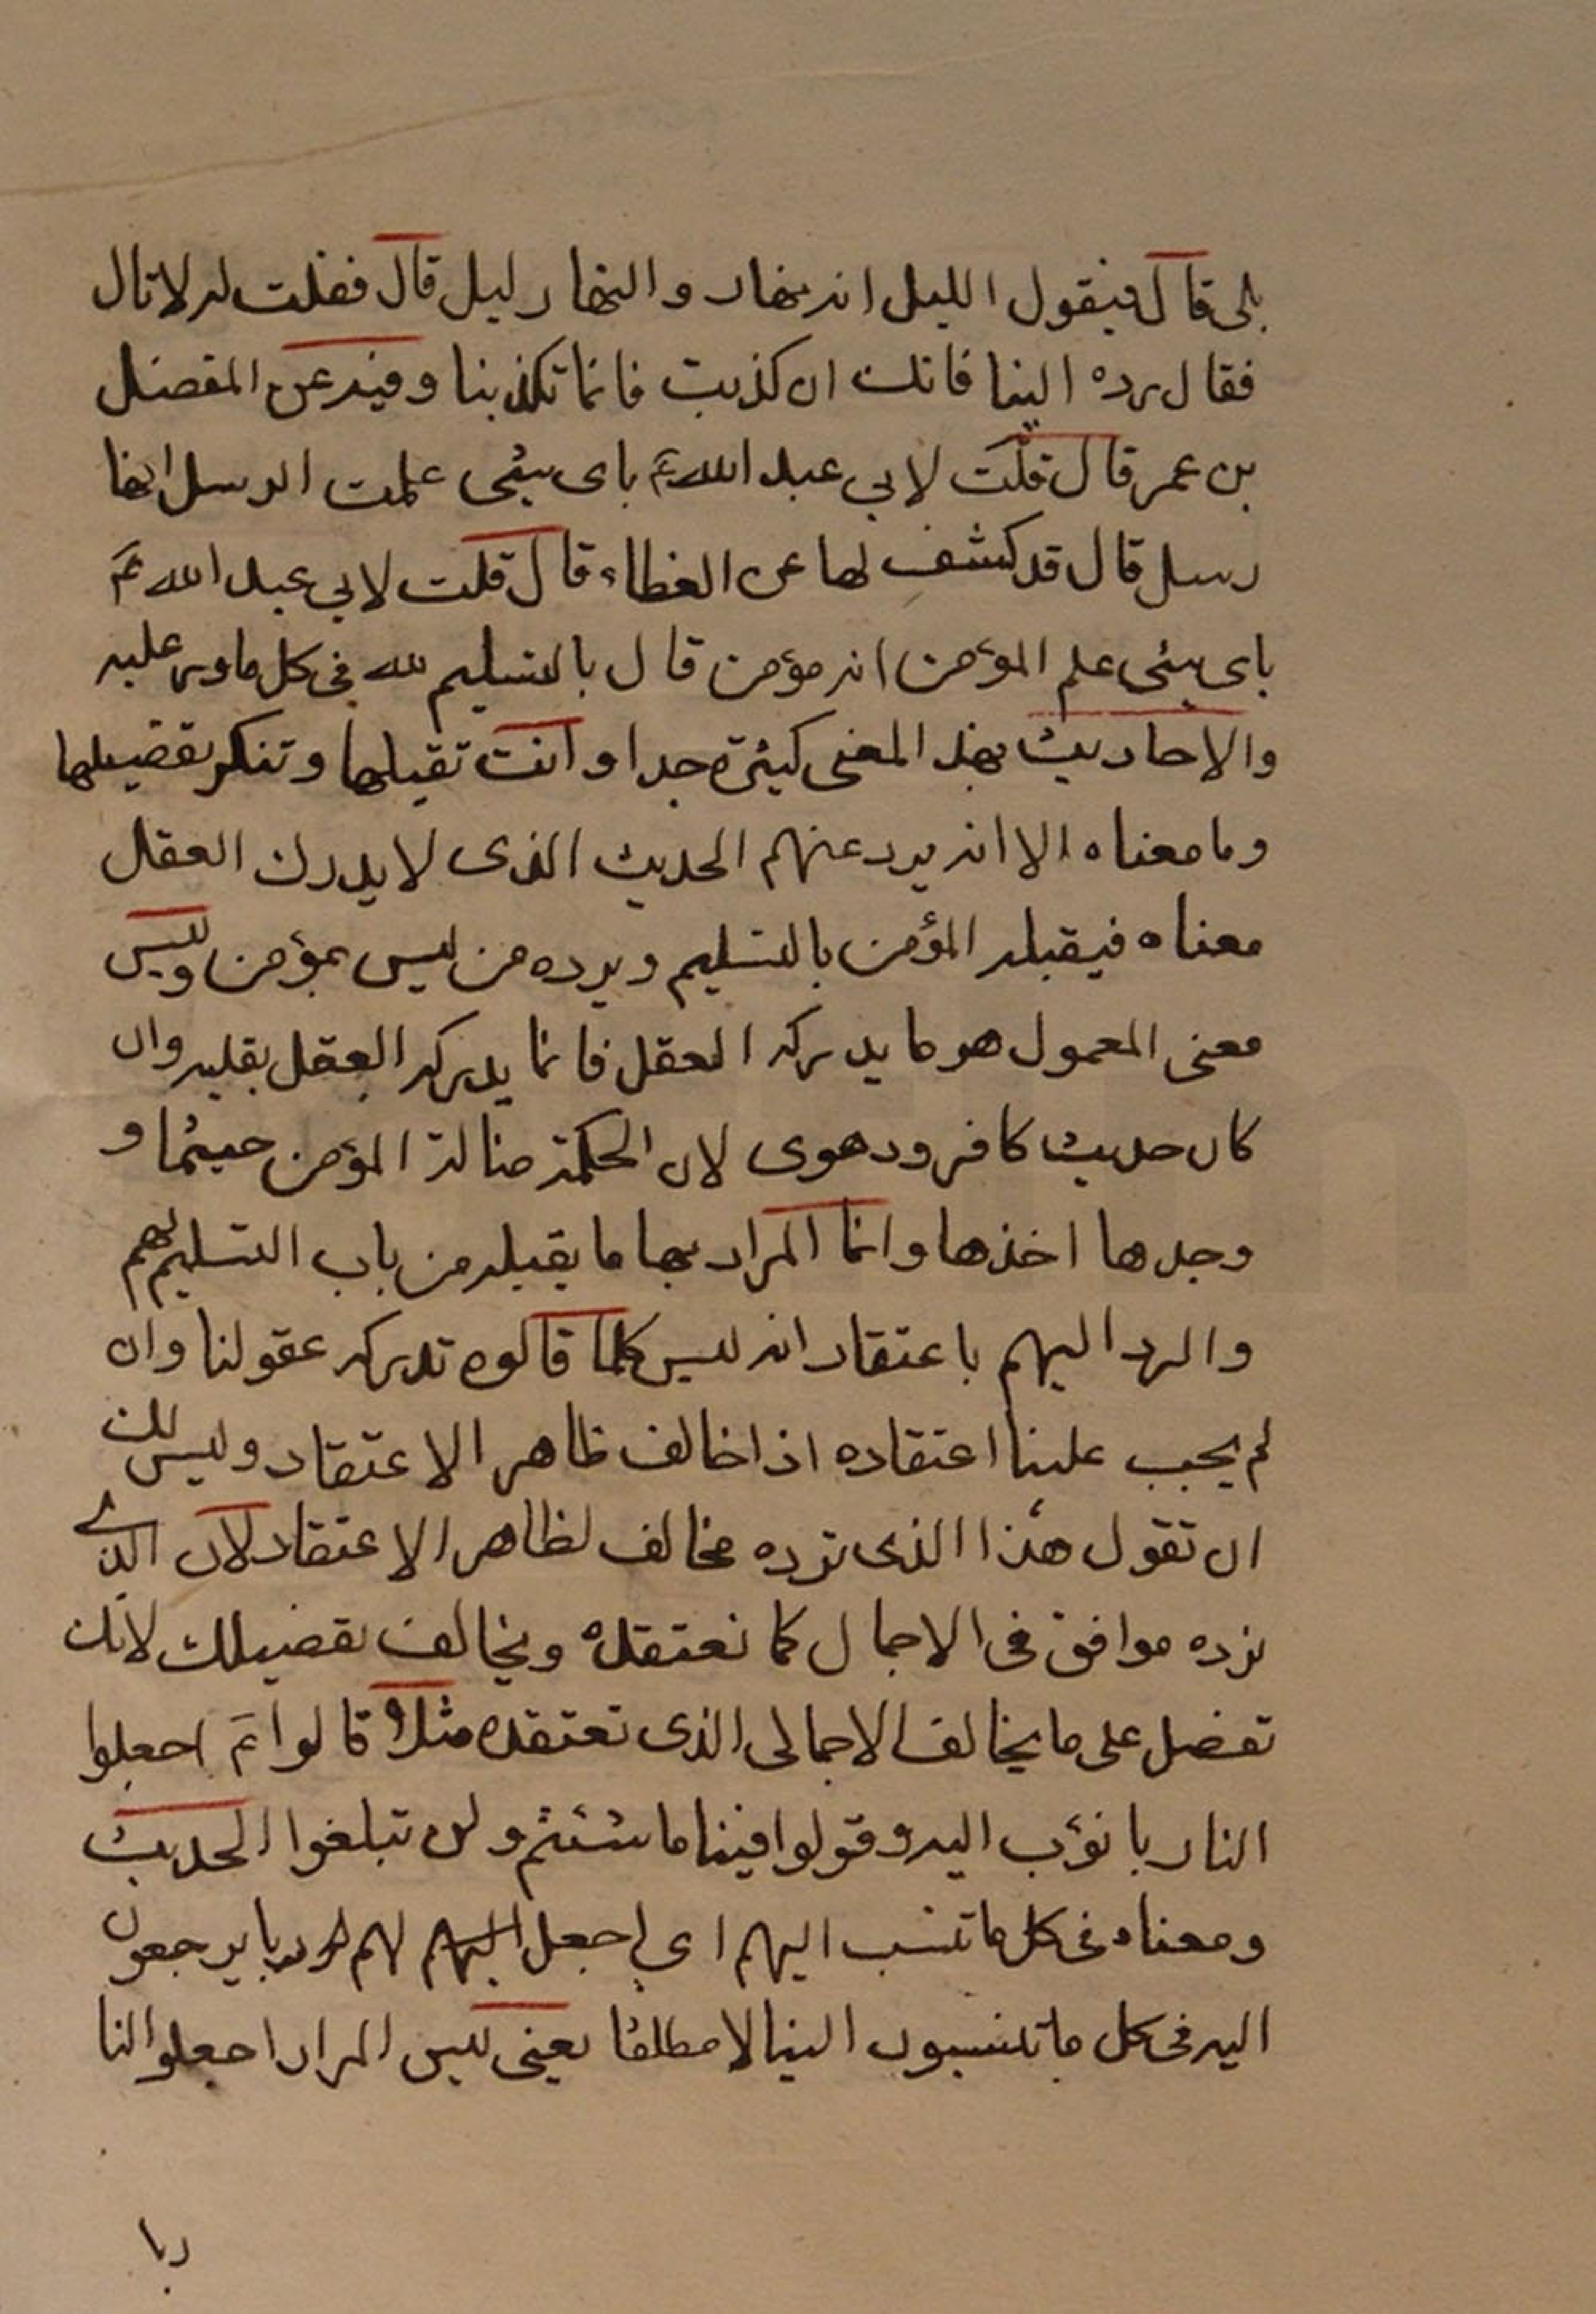 بلى قال فيقول الليل انه نهار والنهار ليل قال فقلت له لا قال
فقال رده الينا فانك ان كذبت فانما تكذبنا وفيه عن المفضل
بن عمر قال قلت لابي عبد الله ع باى شئى علمت الرسل انها
رسل قال قد كشف لها عن الغطاء قال قلت لابي عبد الله ع
باى شئى علم المؤمن انه مؤمن قال بالتسليم لله فى كل ما ورد عليه
والاحاديث بهذ المعنى كثيرة جدا وانت تقبلها وتنكر تفصيلها
وما معناه الا انه يرد عنهم الحديث الذى لا يدرك العقل
معناه فيقبله المؤمن بالتسليم ويرده من ليس بمؤمن وليس
معنى المعمول هو ما يدركه العقل فانما يدركه العقل يقبله وان
كان حديث كافر ودهرى لان الحكمة ضالة المؤمن حيثما و
وجدها اخذها وانما المراد بها ما يقبله من باب التسليم لهم
والرد اليهم باعتقاد انه ليس كلما قالوه تدركه عقولنا وان
لم يجب علينا اعتقاده اذا خالف ظاهر الاعتقاد وليس لك
ان تقول هذا الذى نرده مخالف لظاهر الاعتقاد لان الذي
نرده موافق فى الاجمال كما نعتقده ويخالف تفصيلك لانك
تفصل على ما يخالف الاجمالى الذى تعتقده مثلا قالوا ع اجعلوا
النا ربا نؤب اليه وقولوا فينا ما شئتم ولن تبلغوا الحديث
ومعناه فى كل ما تنسب اليهم اى اجعل اليهم لهم ربا يرجعون
اليه فى كل ما تنسبون الينا لا مطلقا يعنى ليس المراد اجعلوا النا
ربا